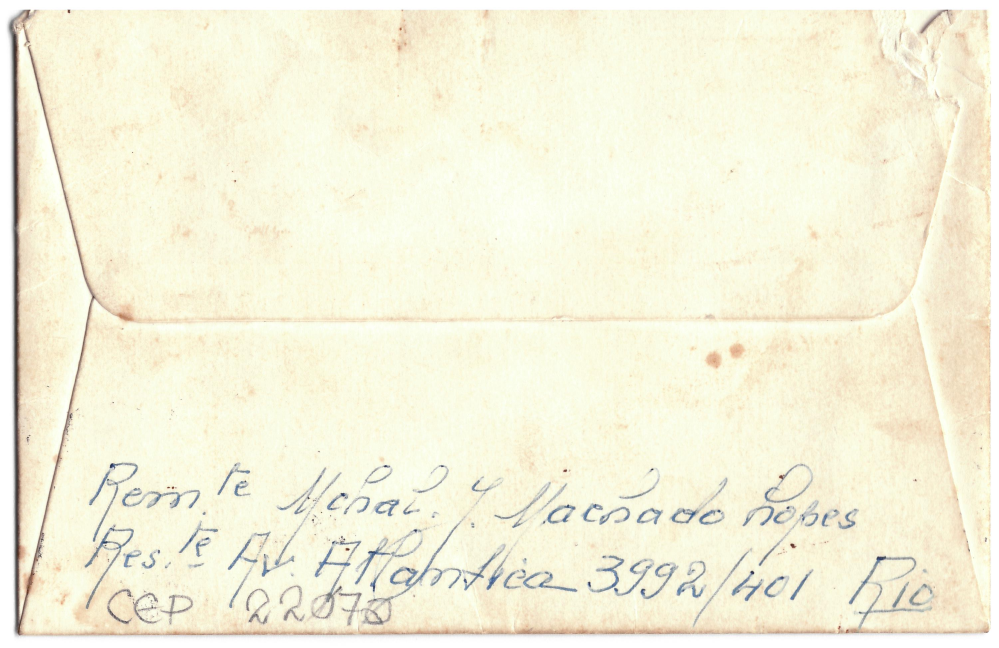 Rem.te Mchal. J Machado Lopes
Res.te Av. Atlantica 3992/401 Rio
CEP 22070